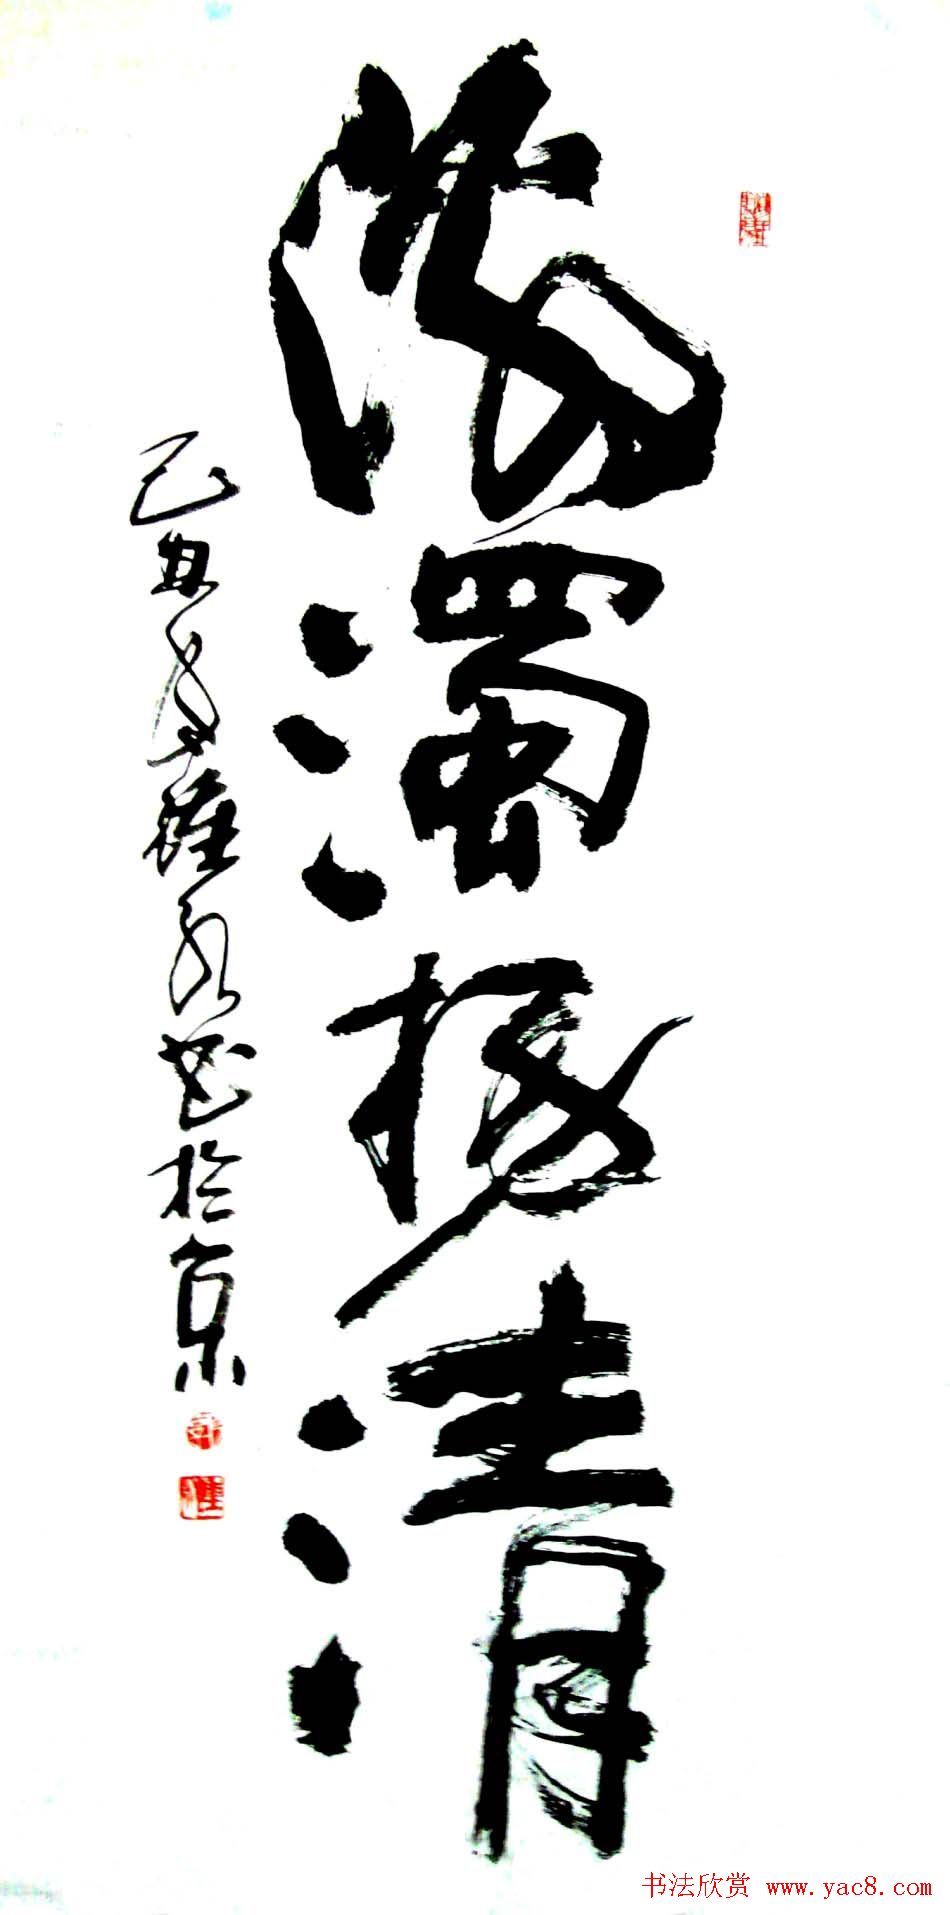 激濁揚清
己丑年書於京
书法欣赏 www.yac8.com